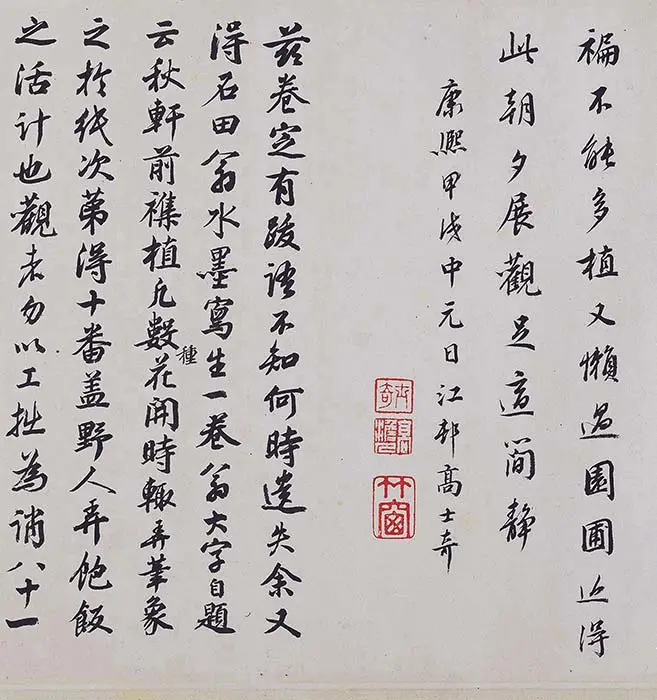 褊不能多植又懶過園圃近得
此朝夕展觀足適簡静
康熙甲戌中元日江邨高士奇
士奇
竹窗
茲卷定有跋語不知何時遺失余又
得石田翁水墨寫生一卷翁大字自題
云秋軒前襍植凡數種花開時輙弄筆象
之扵紙次第得十番盖野人弄飽飯
之活計也觀者勿以工拙為誚八十一